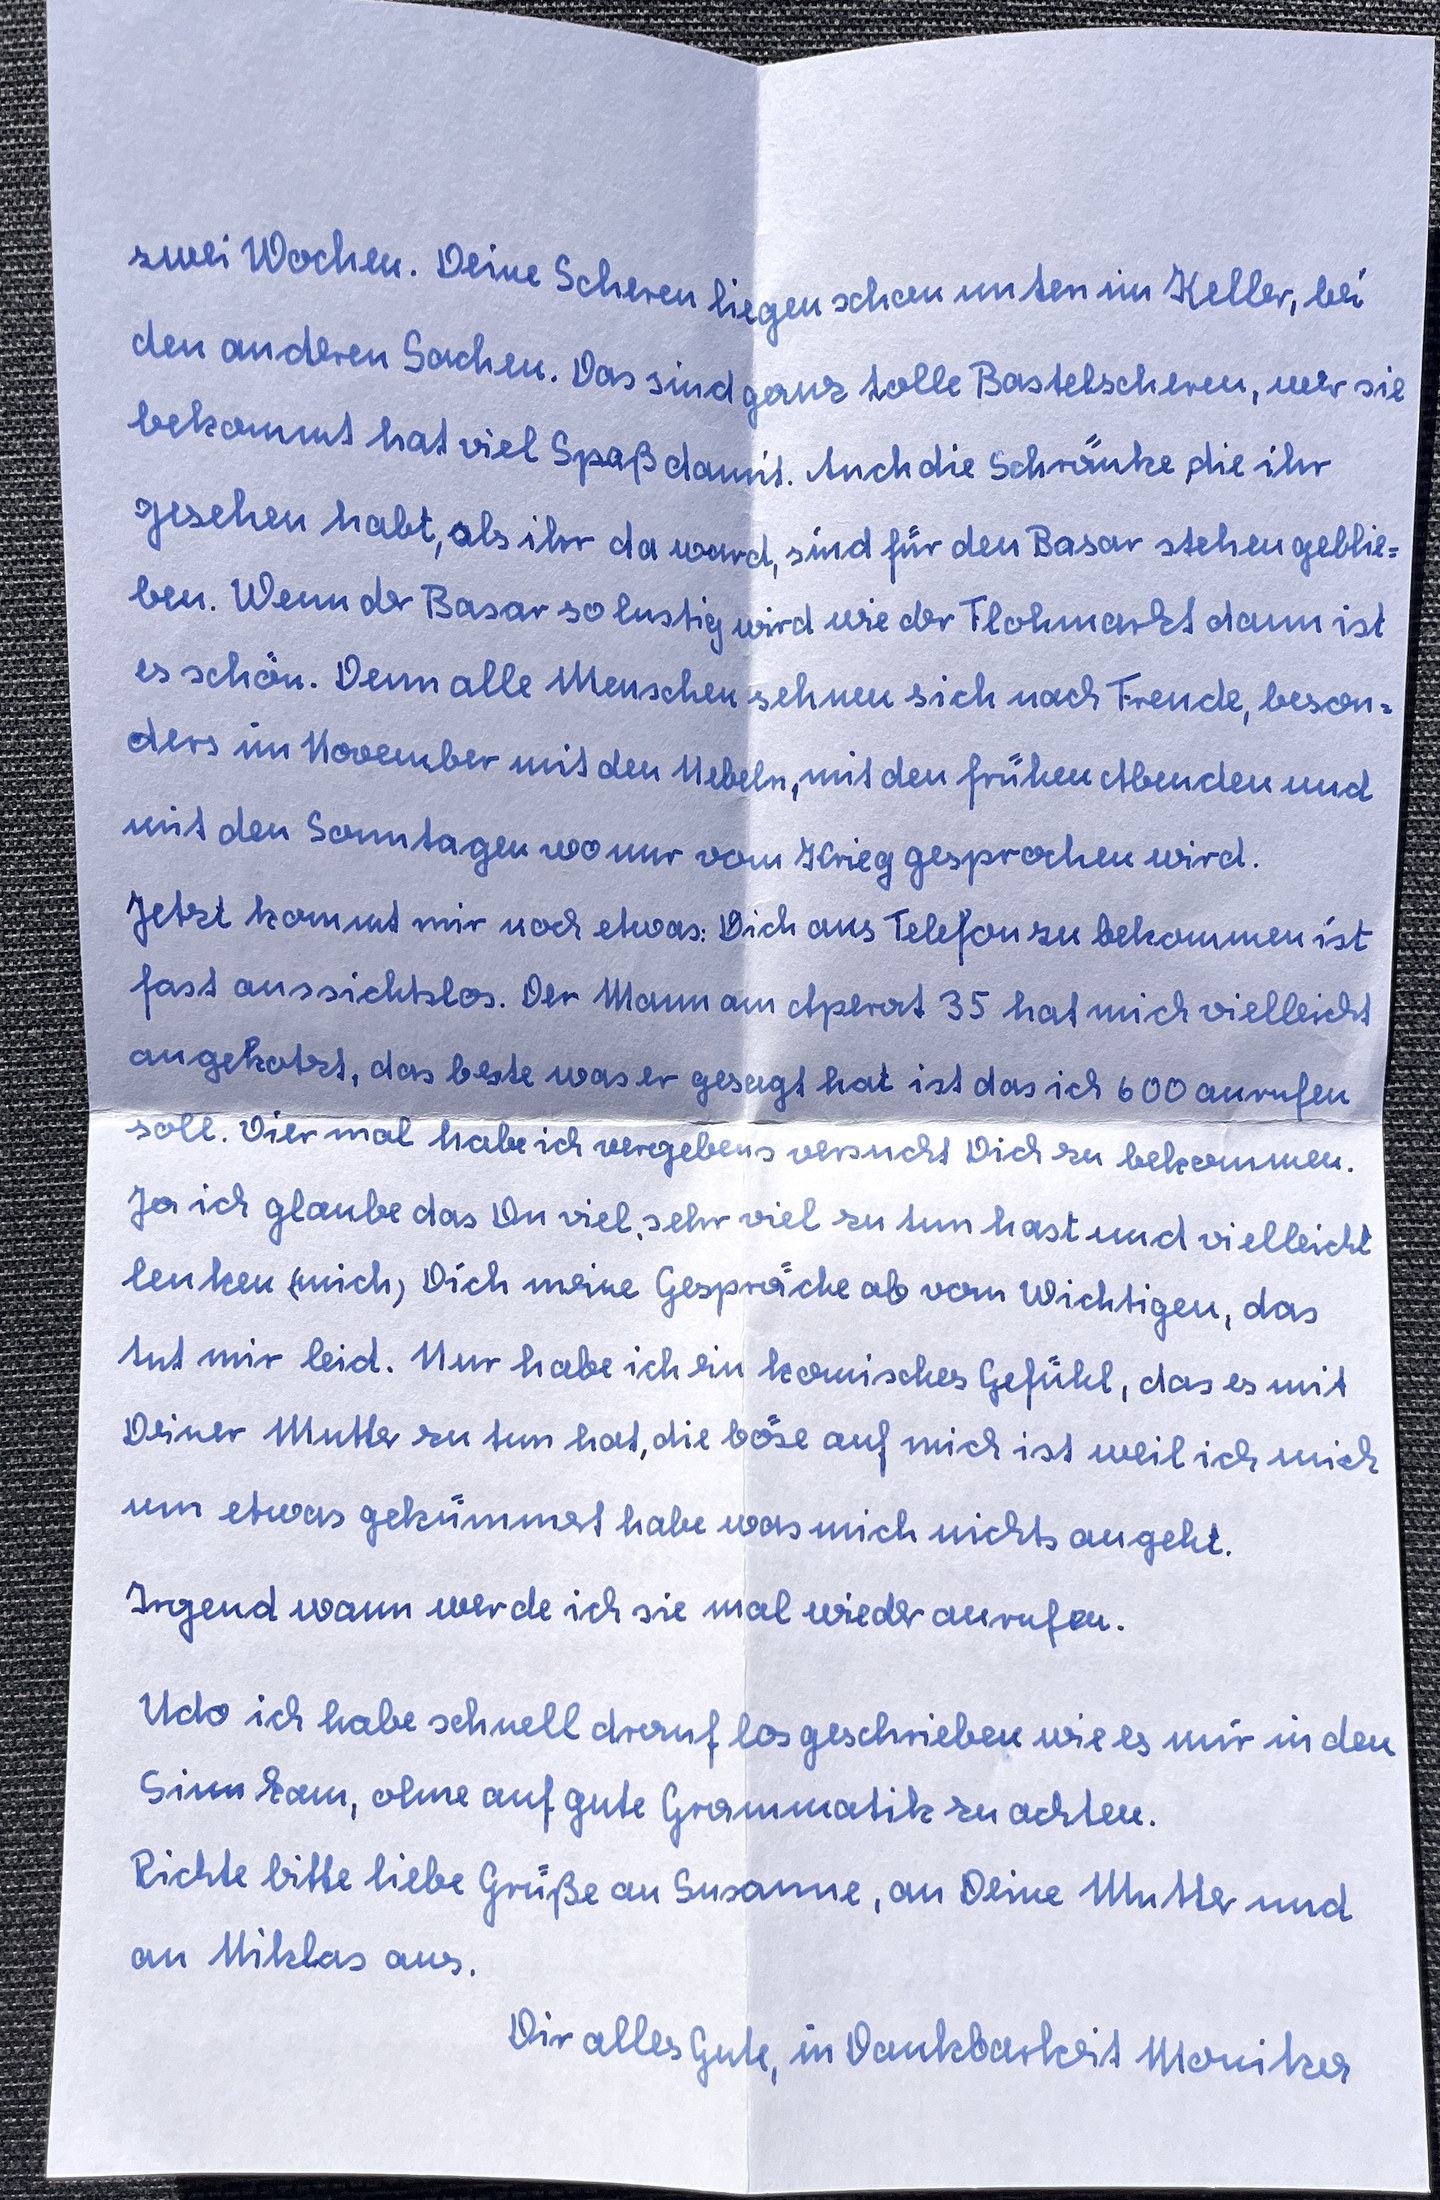 zwei Wochen. Deine Scheren liegen schon unten im Keller, bei
den anderen Sachen. Das sind ganz tolle Bastelscheren, wer sie
bekommt hat viel Spaß damit. Auch die Schränke, die ihr
gesehen habt, als ihr da ward, sind für den Basar stehen geblie=
ben. Wenn der Basar so lustig wird wie der Flohmarkt dann ist
es schön. Denn alle Menschen sehnen sich nach Freude, beson=
ders im November mit den Nebeln, mit den frühen Abenden und
mit den Sonntagen wo nur vom Krieg gesprochen wird.
Jetzt kommt mir noch etwas: Dich ans Telefon zu bekommen ist
fast aussichtslos. Der Mann am Aperat 35 hat mich vielleicht
angekotzt, das beste was er gesagt hat ist das ich 600 anrufen
soll. Vier mal habe ich vergebens versucht Dich zu bekommen.
Ja ich glaube das Du viel, sehr viel zu tun hast und vielleicht
lenken (mich) Dich meine Gespräche ab vom Wichtigen, das
tut mir leid. Nur habe ich ein komisches Gefühl, das es mit
Deiner Mutter zu tun hat, die böse auf mich ist weil ich mich
um etwas gekümmert habe was mich nichts angeht.
Irgend wann werde ich sie mal wieder anrufen.
Udo ich habe schnell drauf los geschrieben wie es mir in den
Sinn kam, ohne auf gute Grammatik zu achten.
Richte bitte liebe Grüße an Susanne, an Deine Mutter und
an Niklas aus.
Dir alles Gute, in Dankbarkeit Monika